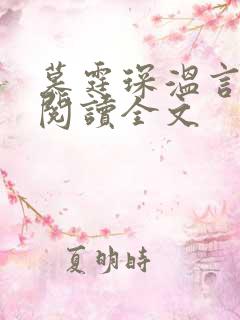 慕霆琛溫言
閱讀全文
夏明時